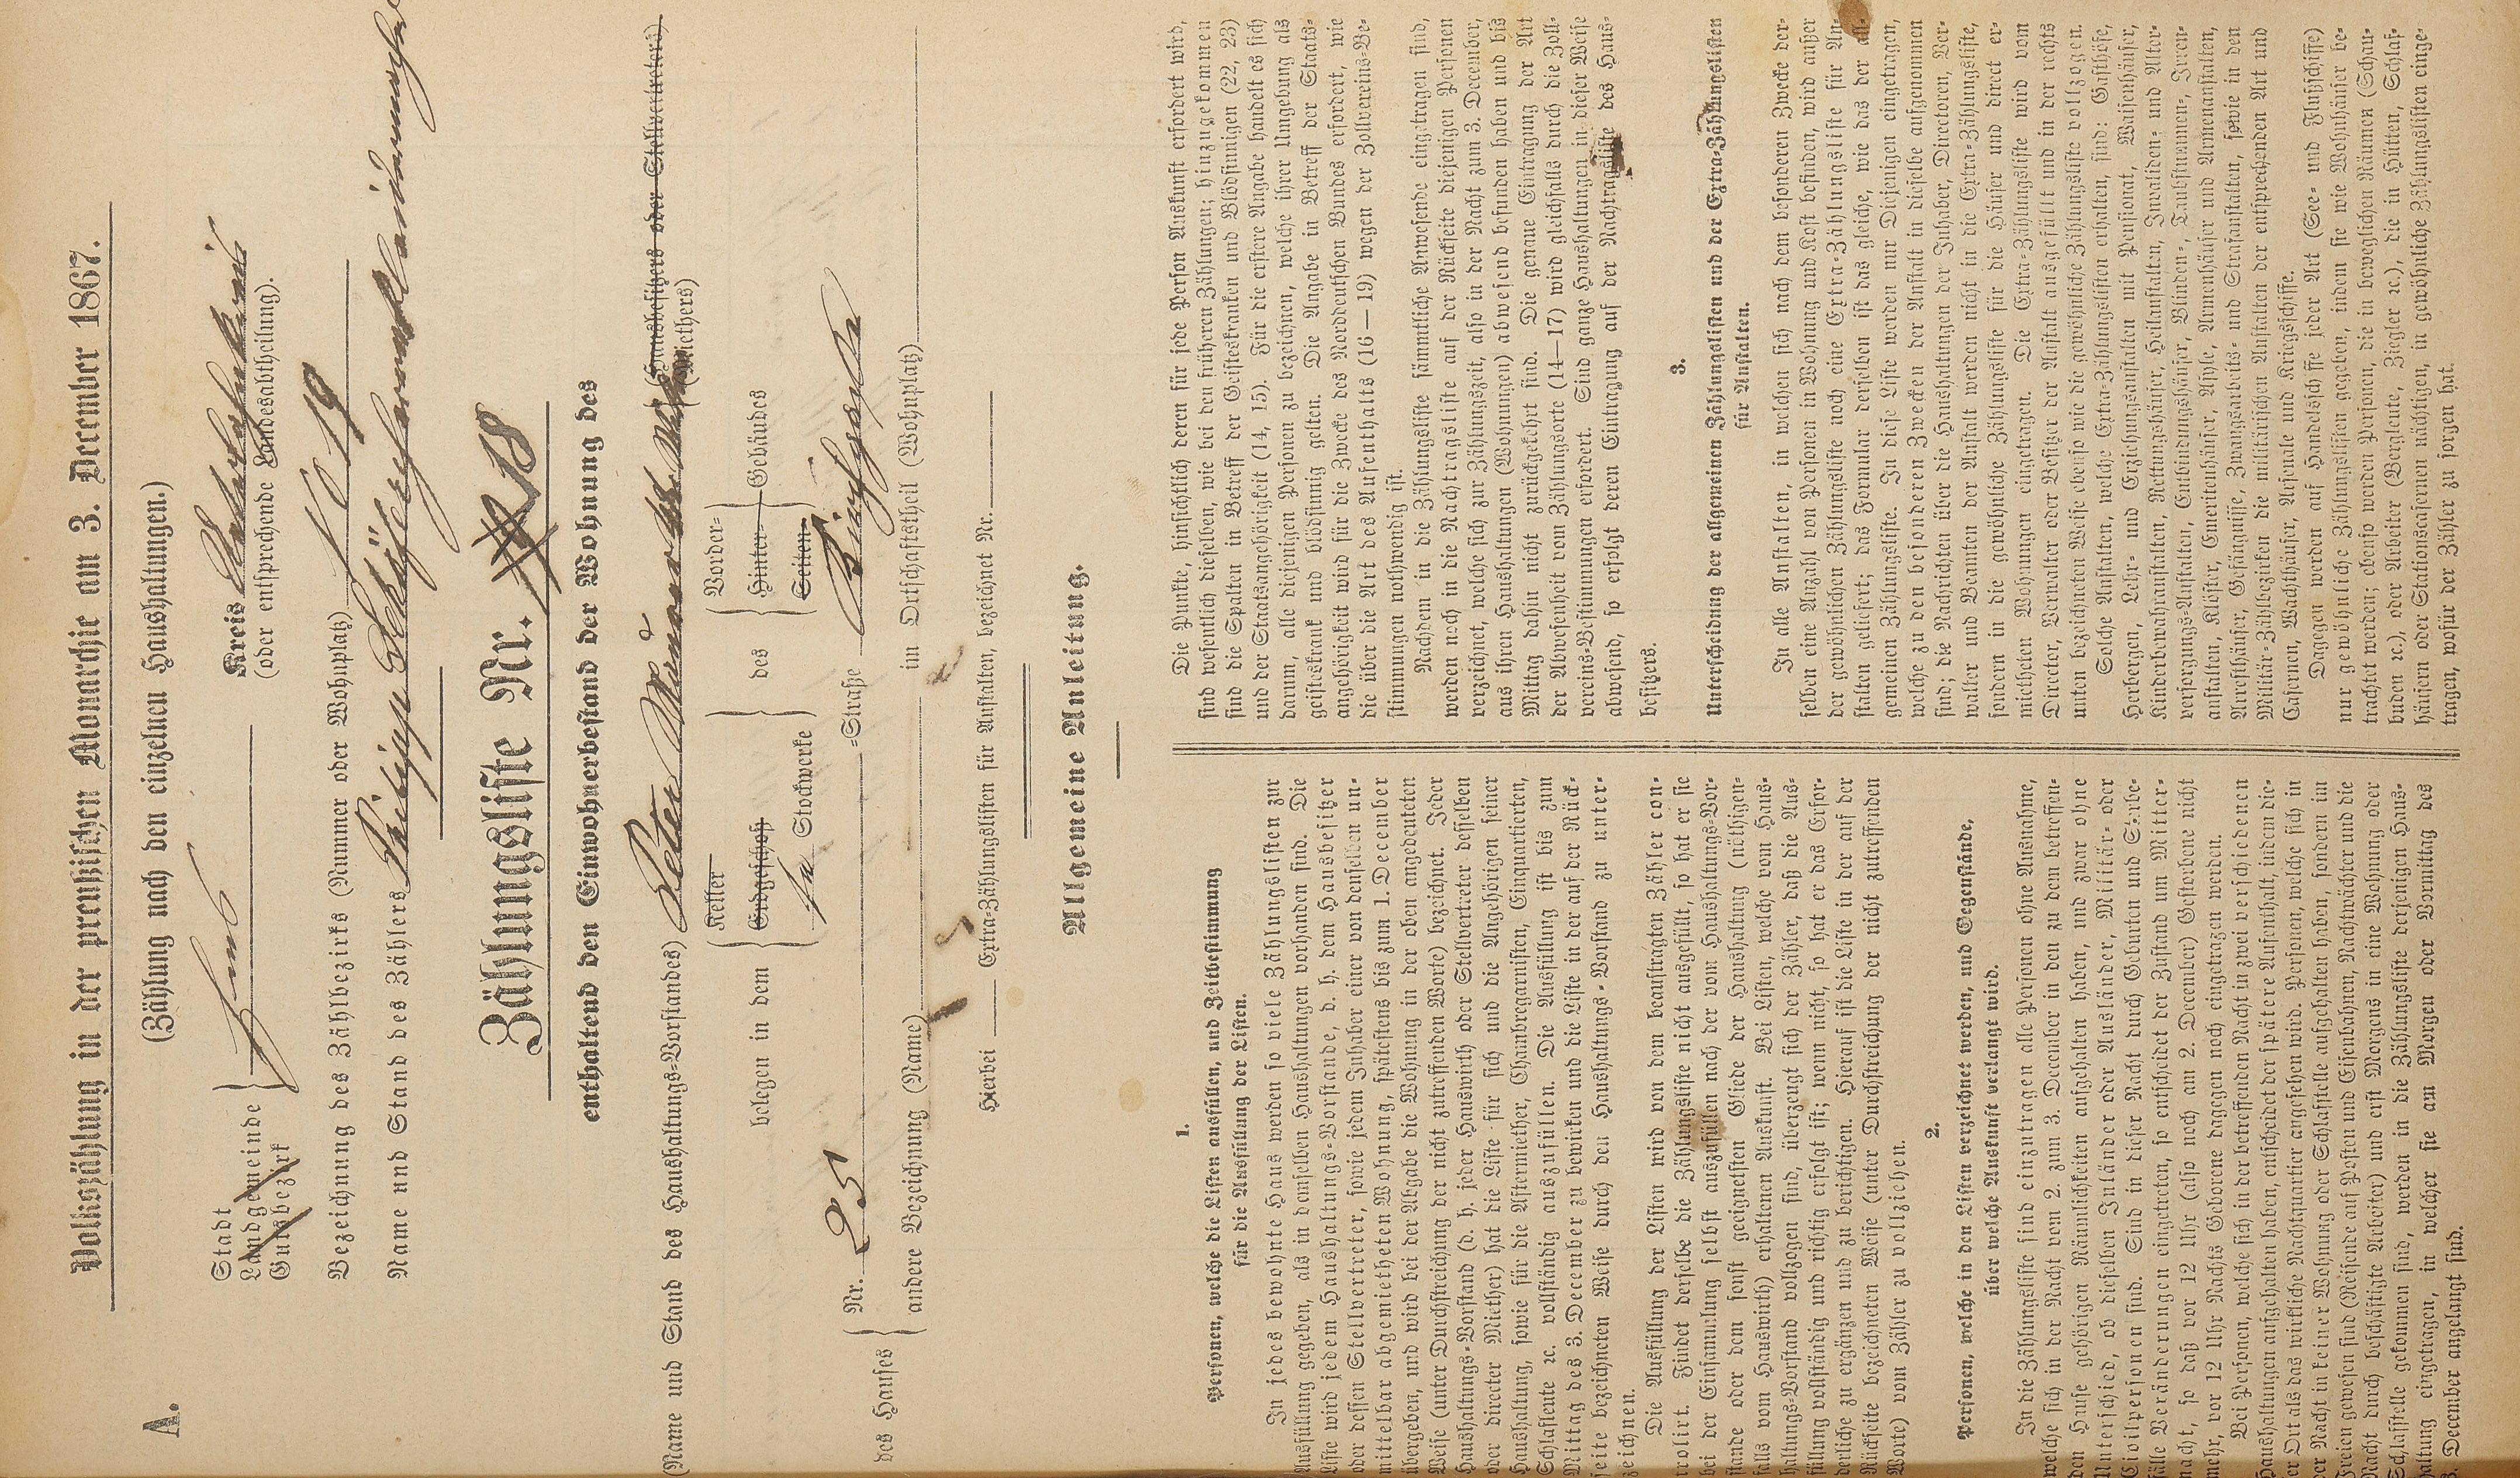 A.
Volkszählung in der preußischen Monarchie am 3. December 1867.
(Zählung nach den einzelnen Haushaltungen.)
Stadt
Landgemeinde
Gutsbezirk
Kreis
(oder entsprechende Landesabtheilung).
Bezeichnung des Zählbezirks (Nummer oder Wohnplatz) No 19
Name und Stand des Zählers Philipp
Zählungsliste Nr. 18
enthaltend den Einwohnerbestand der Wohnung des
(Name und Stand des Haushaltungs-Vorstandes) Peter
(Hausbesitzers oder Stellvertreters)
(Miethers)
belegen in dem
Keller
Erdgeschoß
Stockwerke
des
Vorder-
Hinter-
Seiten-
Gebäudes
des Hauses
Nr. 25 -Straße
andere Bezeichnung (Name) im Ortschaftstheil (Wohnplatz)
Hierbei Extra-Zählungslisten für Anstalten, bezeichnet Nr.
Allgemeine Anleitung.
1.
Personen, welche die Listen ausfüllen, und Zeitbestimmung
für die Ausfüllung der Listen.
In jedes bewohnte Haus werden so viele Zählungslisten zur
Ausfüllung gegeben, als in demselben Haushaltungen vorhanden sind. Die
Liste wird jedem Haushaltungs-Vorstande, d. h. dem Hausbesitzer
oder dessen Stellvertreter, sowie jedem Inhaber einer von denselben un-
mittelbar abgemietheten Wohnung, spätestens bis zum 1. December
übergeben, und wird bei der Abgabe die Wohnung in der oben angedeuteten
Weise (unter Durchstreichung der nicht zutreffenden Worte) bezeichnet. Jeder
Haushaltungs-Vorstand (d. h. jeder Hauswirth oder Stellvertreter desselben
oder directer Miether) hat die Liste für sich und die Angehörigen seiner
Haushaltung, sowie für die Aftermiether, Chambregarnisten, Einquartierten,
Schlafleute ꝛc. vollständig auszufüllen. Die Ausfüllung ist bis zum
Mittag des 3. December zu bewirken und die Liste in der auf der Rück-
seite bezeichneten Weise durch den Haushaltungs-Vorstand zu unter-
zeichnen.
Die Ausfüllung der Listen wird von dem beauftragten Zähler con-
trolirt. Findet derselbe die Zählungsliste nicht ausgefüllt, so hat er sie
bei der Einsammlung selbst auszufüllen nach der vom Haushaltungs-Vor-
stande oder dem sonst geeignetsten Gliede der Haushaltung (nöthigen-
falls vom Hauswirth) erhaltenen Auskunft. Bei Listen, welche vom Haus-
haltungs-Vorstand vollzogen sind, überzeugt sich der Zähler, daß die Aus-
füllung vollständig und richtig erfolgt ist; wenn nicht, so hat er das Erfor-
derliche zu ergänzen und zu berichtigen. Hierauf ist die Liste in der auf der
Rückseite bezeichneten Weise (unter Durchstreichung der nicht zutreffenden
Worte) vom Zähler zu vollziehen.
2.
Personen, welche in den Listen verzeichnet werden, und Gegenstände,
über welche Auskunft verlangt wird.
In die Zählungsliste sind einzutragen alle Personen ohne Ausnahme,
welche sich in der Nacht vom 2. zum 3. December in den zu dem betreffen-
den Hause gehörigen Räumlichkeiten aufgehalten haben, und zwar ohne
Unterschied, ob dieselben Inländer oder Ausländer, Militär- oder
Civilpersonen sind. Sind in dieser Nacht durch Geburten und Sterbe-
fälle Veränderungen eingetreten, so entscheidet der Zustand um Mitter-
nacht, so daß vor 12 Uhr (also noch am 2. December) Gestorbene nicht
mehr, vor 12 Uhr Nachts Geborene dagegen noch eingetragen werden.
Bei Personen, welche sich in der betreffenden Nacht in zwei verschiedenen
Haushaltungen aufgehalten haben, entscheidet der spätere Aufenthalt, indem die-
ser Ort als das wirkliche Nachtquartier angesehen wird. Personen, welche sich in
der Nacht in keiner Wohnung oder Schlafstelle aufgehalten haben, sondern im
Freien gewesen sind (Reisende auf Posten und Eisenbahnen, Nachtwächter und die
Nacht durch beschäftigte Arbeiter) und erst Morgens in eine Wohnung oder
Schlafstelle gekommen sind, werden in die Zählungsliste derjenigen Haus-
haltung eingetragen, in welcher sie am Morgen oder Vormittag des
3. December angelangt sind.
Die Punkte, hinsichtlich deren für jede Person Auskunft erfordert wird,
sind wesentlich dieselben, wie bei den früheren Zählungen; hinzugekommen
sind die Spalten in Betreff der Geisteskranken und Blödsinnigen (22, 23)
und der Staatsangehörigkeit (14, 15). Für die erstere Angabe handelt es sich
darum, alle diejenigen Personen zu bezeichnen, welche ihrer Umgebung als
geisteskrank und blödsinnig gelten. Die Angabe in Betreff der Staats-
angehörigkeit wird für die Zwecke des Norddeutschen Bundes erfordert, wie
die über die Art des Aufenthalts (16—19) wegen der Zollvereins-Be-
stimmungen nothwendig ist.
Nachdem in die Zählungsliste sämmtliche Anwesende eingetragen sind,
werden noch in die Nachtragsliste auf der Rückseite diejenigen Personen
verzeichnet, welche sich zur Zählungszeit, also in der Nacht zum 3. December,
aus ihren Haushaltungen (Wohnungen) abwesend befunden haben und bis
Mittag dahin nicht zurückgekehrt sind. Die genaue Eintragung der Art
der Abwesenheit vom Zählungsorte (14—17) wird gleichfalls durch die Zoll-
vereins-Bestimmungen erfordert. Sind ganze Haushaltungen in dieser Weise
abwesend, so erfolgt deren Eintragung auf der Nachtragsliste des Haus-
besitzers.
3.
Unterscheidung der allgemeinen Zählungslisten und der Extra-Zählungslisten
für Anstalten.
In alle Anstalten, in welchen sich nach dem besonderen Zwecke der-
selben eine Anzahl von Personen in Wohnung und Kost befinden, wird außer
der gewöhnlichen Zählungsliste noch eine Extra-Zählungsliste für An-
stalten geliefert; das Formular derselben ist das gleiche, wie das der all-
gemeinen Zählungsliste. In diese Liste werden nur Diejenigen eingetragen,
welche zu den besonderen Zwecken der Anstalt in dieselbe aufgenommen
sind; die Nachrichten über die Haushaltungen der Inhaber, Directoren, Ver-
walter und Beamten der Anstalt werden nicht in die Extra-Zählungsliste,
sondern in die gewöhnliche Zählungsliste für die Häuser und direct er-
mietheten Wohnungen eingetragen. Die Extra-Zählungsliste wird vom
Director, Verwalter oder Besitzer der Anstalt ausgefüllt und in der rechts
unten bezeichneten Weise ebenso wie die gewöhnliche Zählungsliste vollzogen.
Solche Anstalten, welche Extra-Zählungslisten erhalten, sind: Gasthöfe,
Herbergen, Lehr- und Erziehungsanstalten mit Pensionat, Waisenhäuser,
Kinderbewahranstalten, Rettungshäuser, Heilanstalten, Invaliden- und Alter-
versorgungs-Anstalten, Entbindungshäuser, Blinden-, Taubstummen-, Irren-
anstalten, Klöster, Emeritenhäuser, Asyle, Armenhäuser und Armenanstalten,
Arresthäuser, Gefängnisse, Zwangsarbeits- und Strafanstalten, sowie in den
Militär-Zählbezirken die militärischen Anstalten der entsprechenden Art und
Casernen, Wachthäuser, Arsenale und Kriegsschiffe.
Dagegen werden auf Handelsschiffe jeder Art (See- und Flußschiffe)
nur gewöhnliche Zählungslisten gegeben, indem sie wie Wohnhäuser be-
trachtet werden; ebenso werden Personen, die in beweglichen Räumen (Schau-
buden ꝛc.), oder Arbeiter (Bergleute, Ziegler ꝛc.), die in Hütten, Schlaf-
häusern oder Stationscasernen nächtigen, in gewöhnliche Zählungslisten einge-
tragen, wofür der Zähler zu sorgen hat.